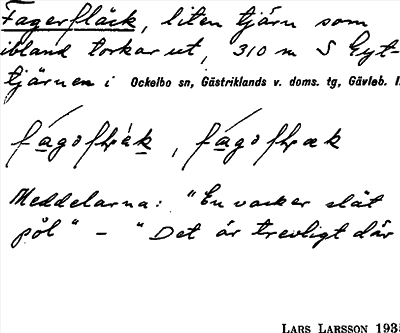 Fagerfläck, liten tjärn som
ibland torkar ut, 310 m S Gyt-
tjärnen i Ockelbo sn, Gästriklands v. doms. tg, Gävleb. l
Meddelarna: "En vacker slät
pöl" – "Det är trevligt där
LARS LARSSON 193